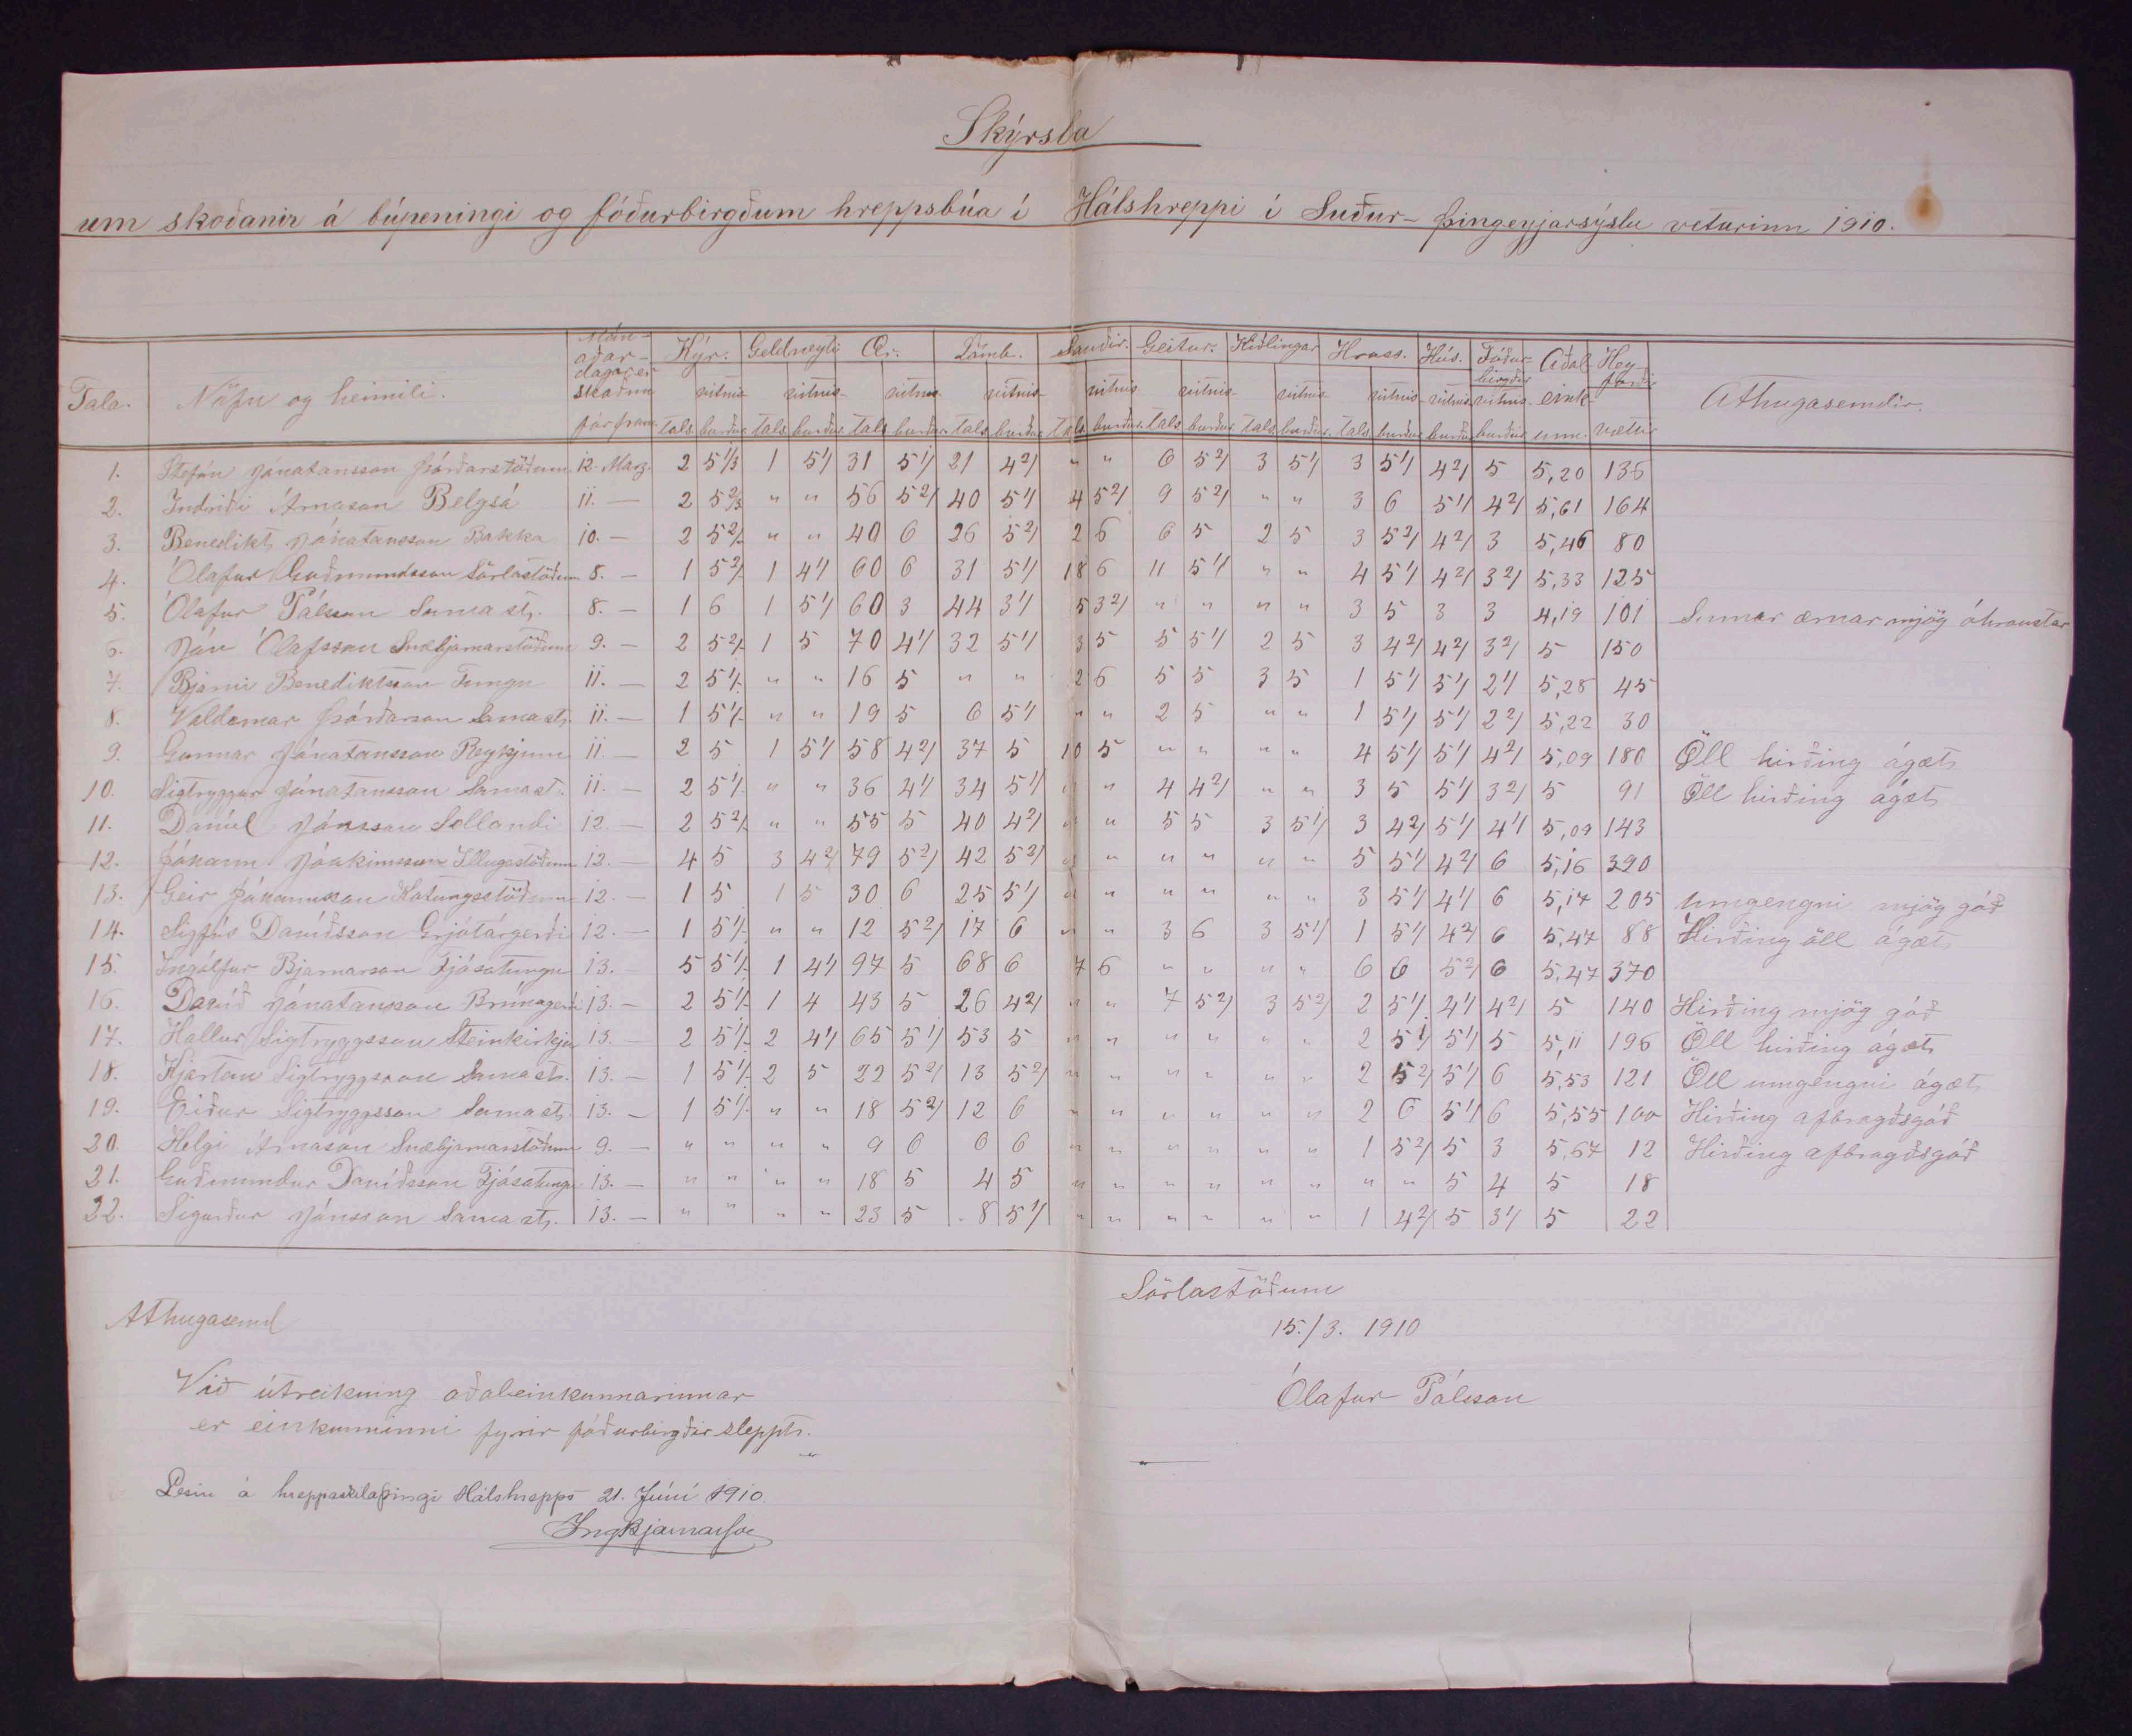 Skýrsla
um skoðanir á búpeningi og fóðurbirgðum hreppsbúa í Hálshreppi í Suður-Þingeyjarsýslu veturinn 1910.
Tala. Nöfn og heimili. Mán-aðar-dagar er skoðun fór fram Kýr. Geldneyti Ær. Lömb. Sauðir. Geitur. Kiðlingar Hross. Hús. Fóður-birgðir Aðal eink-unn. Hey-forði Athugasemdir.
tals vitnis-burður tals vitnis-burður tals vitnis-burður tals vitnis-burður tals vitnis-burður tals vitnis-burður tals vitnis-burður tals vitnis-burður vitnis-burður vitnis-burður vættir
1. Stefán Jónatansson Þórðarstöðum 12. Marz. 2 5 1/3 1 5 1/ 31 5 1/ 21 4 2/ " " 6 5 2/ 3 5 1/ 3 5 1/ 4 2/ 5 5,20 136
2. Indriði Árnason Belgsá 11. — 2 5 2/3 " " 56 5 2/ 40 5 1/ 4 5 2/ 9 5 2/ " " 3 6 5 1/ 4 2/ 5,61 164
3. Benedikt Jónatansson Bakka 10. — 2 5 2/ " " 40 6 26 5 2/ 2 6 6 5 2 5 3 5 2/ 4 2/ 3 5,46 80
4. Ólafur Guðmundsson Sörlastöðum 8. — 1 5 2/ 1 4 1/ 60 6 31 5 1/ 18 6 11 5 1/ " " 4 5 1/ 4 2/ 3 2/ 5,33 125
5. Ólafur Pálsson Sama st. 8. — 1 6 1 5 1/ 60 3 44 3 1/ 5 3 2/ " " " " 3 5 3 3 4,19 101 Sumar ærnar mjög óhraustar
6. Jón Ólafsson Snæbjarnarstöðum 9. — 2 5 2/ 1 5 70 4 1/ 32 5 1/ 3 5 5 5 1/ 2 5 3 4 2/ 4 2/ 3 2/ 5 150
7. Bjarni Benediktsson Tungu 11. — 2 5 1/ " " 16 5 " " 2 6 5 5 3 5 1 5 1/ 5 1/ 2 1/ 5,28 45
8. Valdemar Þórðarson Sama st. 11. — 1 5 1/ " " 19 5 6 5 1/ " " 2 5 " " 1 5 1/ 5 1/ 2 2/ 5,22 30
9. Gunnar Jónatansson Reykjum 11. — 2 5 1 5 1/ 58 4 2/ 37 5 10 5 " " " " 4 5 1/ 5 1/ 4 2/ 5,09 180 Öll hirðing ágæt
10. Sigtryggur Jónatansson Sama st. 11. — 2 5 1/ " " 36 4 1/ 34 5 1/ " " 4 4 2/ " " 3 5 5 1/ 3 2/ 5 91 Öll hirðing ágæt
11. Daníel Jónsson Sellandi 12. — 2 5 2/ " " 55 5 40 4 2/ " " 5 5 3 5 1/ 3 4 2/ 5 1/ 4 1/ 5,09 143
12. Jóhann Jóakimsson Illugastöðum 12. — 4 5 3 4 2/ 79 5 2/ 42 5 2/ " " " " " " 5 5 1/ 4 2/ 6 5,16 390
13. Geir Jóhannsson Hatungsstöðum 12. — 1 5 1 5 30 6 25 5 1/ " " " " " " 3 5 1/ 4 1/ 6 5,17 205 umgengni mjög góð
14. Sigfús Davíðsson Grjótárgerði 12. — 1 5 1/ " " 12 5 2/ 17 6 " " 3 6 3 5 1/ 1 5 1/ 4 2/ 6 5,47 88 Hirðing öll ágæt
15. Ingólfur Bjarnarson Fjósatungu 13. — 5 5 1/ 1 4 1/ 97 5 68 6 7 6 " " " " 6 6 5 2/ 6 5,47 370
16. Davíð Jónatansson Brúnagerði 13. — 2 5 1/ 1 4 43 5 26 4 2/ " " 7 5 2/ 3 5 2/ 2 5 1/ 4 1/ 4 2/ 5 140 Hirðing mjög góð
17. Hallur Sigtryggsson Steinkirkju 13. — 2 5 1/ 2 4 1/ 65 5 1/ 53 5 " " " " " " 2 5 1/ 5 1/ 5 5,11 196 Öll hirðing ágæt
18. Kjartan Sigtryggsson Sama st. 13. — 1 5 1/ 2 5 22 5 2/ 13 5 2/ " " " " " " 2 5 2/ 5 1/ 6 5,53 121 Öll umgengni ágæt
19. Eiður Sigtryggsson Sama st. 13. — 1 5 1/ " " 18 5 2/ 12 6 " " " " " " 2 6 5 1/ 6 5,55 100 Hirðing afbragðsgóð
20. Helgi Árnason Snæbjarnarstöðum 9. — " " " " 9 6 6 6 " " " " " " 1 5 2/ 5 3 5,67 12 Hirðing afbragðsgóð
21. Guðmundur Davíðsson Fjósatungu 13. — " " " " 18 5 4 5 " " " " " " " " 5 4 5 18
22. Sigurður Jónsson Sama st. 13. — " " " " 23 5 8 5 1/ " " " " " " 1 4 2/ 5 3 1/ 5 22
Athugasemd
Við útreikning aðaleinkunnarinnar
er einkunninni fyrir fóðurbirgðir sleppt.
Lesin á hreppaskilaþingi Hálshrepps 21. Júní 1910.
IngBjarnarson
Sörlastöðum
15./3. 1910
Ólafur Pálsson